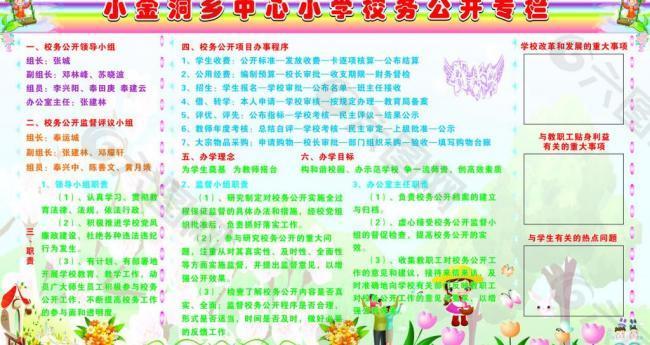 小金洞乡中心小学校务公开专栏
一、校务公开领导小组
组长：张城
副组长：邓林峰、苏晓波
组员：李兴阳、奉田庚 奉建云
办公室主任：张建林
二、校务公开监督评议小组
组长：奉运城
副组长：张建林、邓耀轩
组员：奉兴中、陈善文、黄月娥
四、校务公开项目办事程序
1、学生收费：公开标准—发放收费—卡逐项核算—公布结算
2、公用经费：编制预算—校长审批—收支期限—财务督检
3、招生：学生报名—学校审批—公布名单—班主任接收
4、借、转学：本人申请—学校审核—按规定办理—教育局备案
5、评优、评先：公布指标—学校考核—民主评议—结果公示
6、教师年度考核：总结自评—学校考核—民主审定—上级批准—公示
7、大宗物品采购：申请购物—校长审批—部门组织采购—验收—填写购物台账
五、办学理念
为学生奠基 为教师搭台
六、办学目标
构和谐校园、办示范学校 争一流师资、创高效素质
三、职责
1、领导小组职责
（1）、认真学习、贯彻教
育法律、法规，依法行政。
（2）、积极推进学校党风
廉政建设，杜绝各种违法违纪
行为发生。
（3）、有计划、有部署地
开展学校教育、教学工作，动
员广大师生员工积极参与校务
公开工作，不断提高校务工作
的参与面和透明度。
2、监督小组职责
（1）、研究制定对校务公开实施全过
程保证监督的具体办法和措施，经校党组
组批准后，负责抓好落实工作。
（2）、参与研究校务公开的重大问
题，注重从对其真实性、及时性、全面性
等方面实施监督，并提出监督意见，以增
强公开效果。
（3）、检查了解校务公开内容是否真
实、全面；监督校务公开程序是否合理、
形式是否适当，时间是否及时，做好必要
的反馈工作。
3、办公室主任职责
（1）、负责校务公开档案的建立
与归档。
（2）、虚心接受校务公开监督小
组的督促检查，提高校务公开的实
效。
（3）、收集教职工对校务公开工
作的意见和建议，接待来信来访，及
时准确地向学校有关部门反映教职工
对校务公开工作的意见或要求，以增
强公开效果。
学校改革和发展的重大事项
与教职工贴身利益
有关的重大事项
与学生有关的热点问题